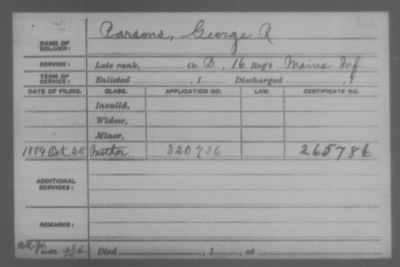 NAME OF SOLDIER: Parsons, George R
SERVICE: Late rank, Co. B, 16 Reg't Maine Inf
TERM OF SERVICE: Enlisted , 1 Discharged , 1
DATE OF FILING. CLASS. APPLICATION NO. LAW. CERTIFICATE NO.
Invalid,
Widow,
Minor,
1884 Oct 25 Mother 320736 265786
ADDITIONAL SERVICES:
REMARKS:
Died , 1 , at